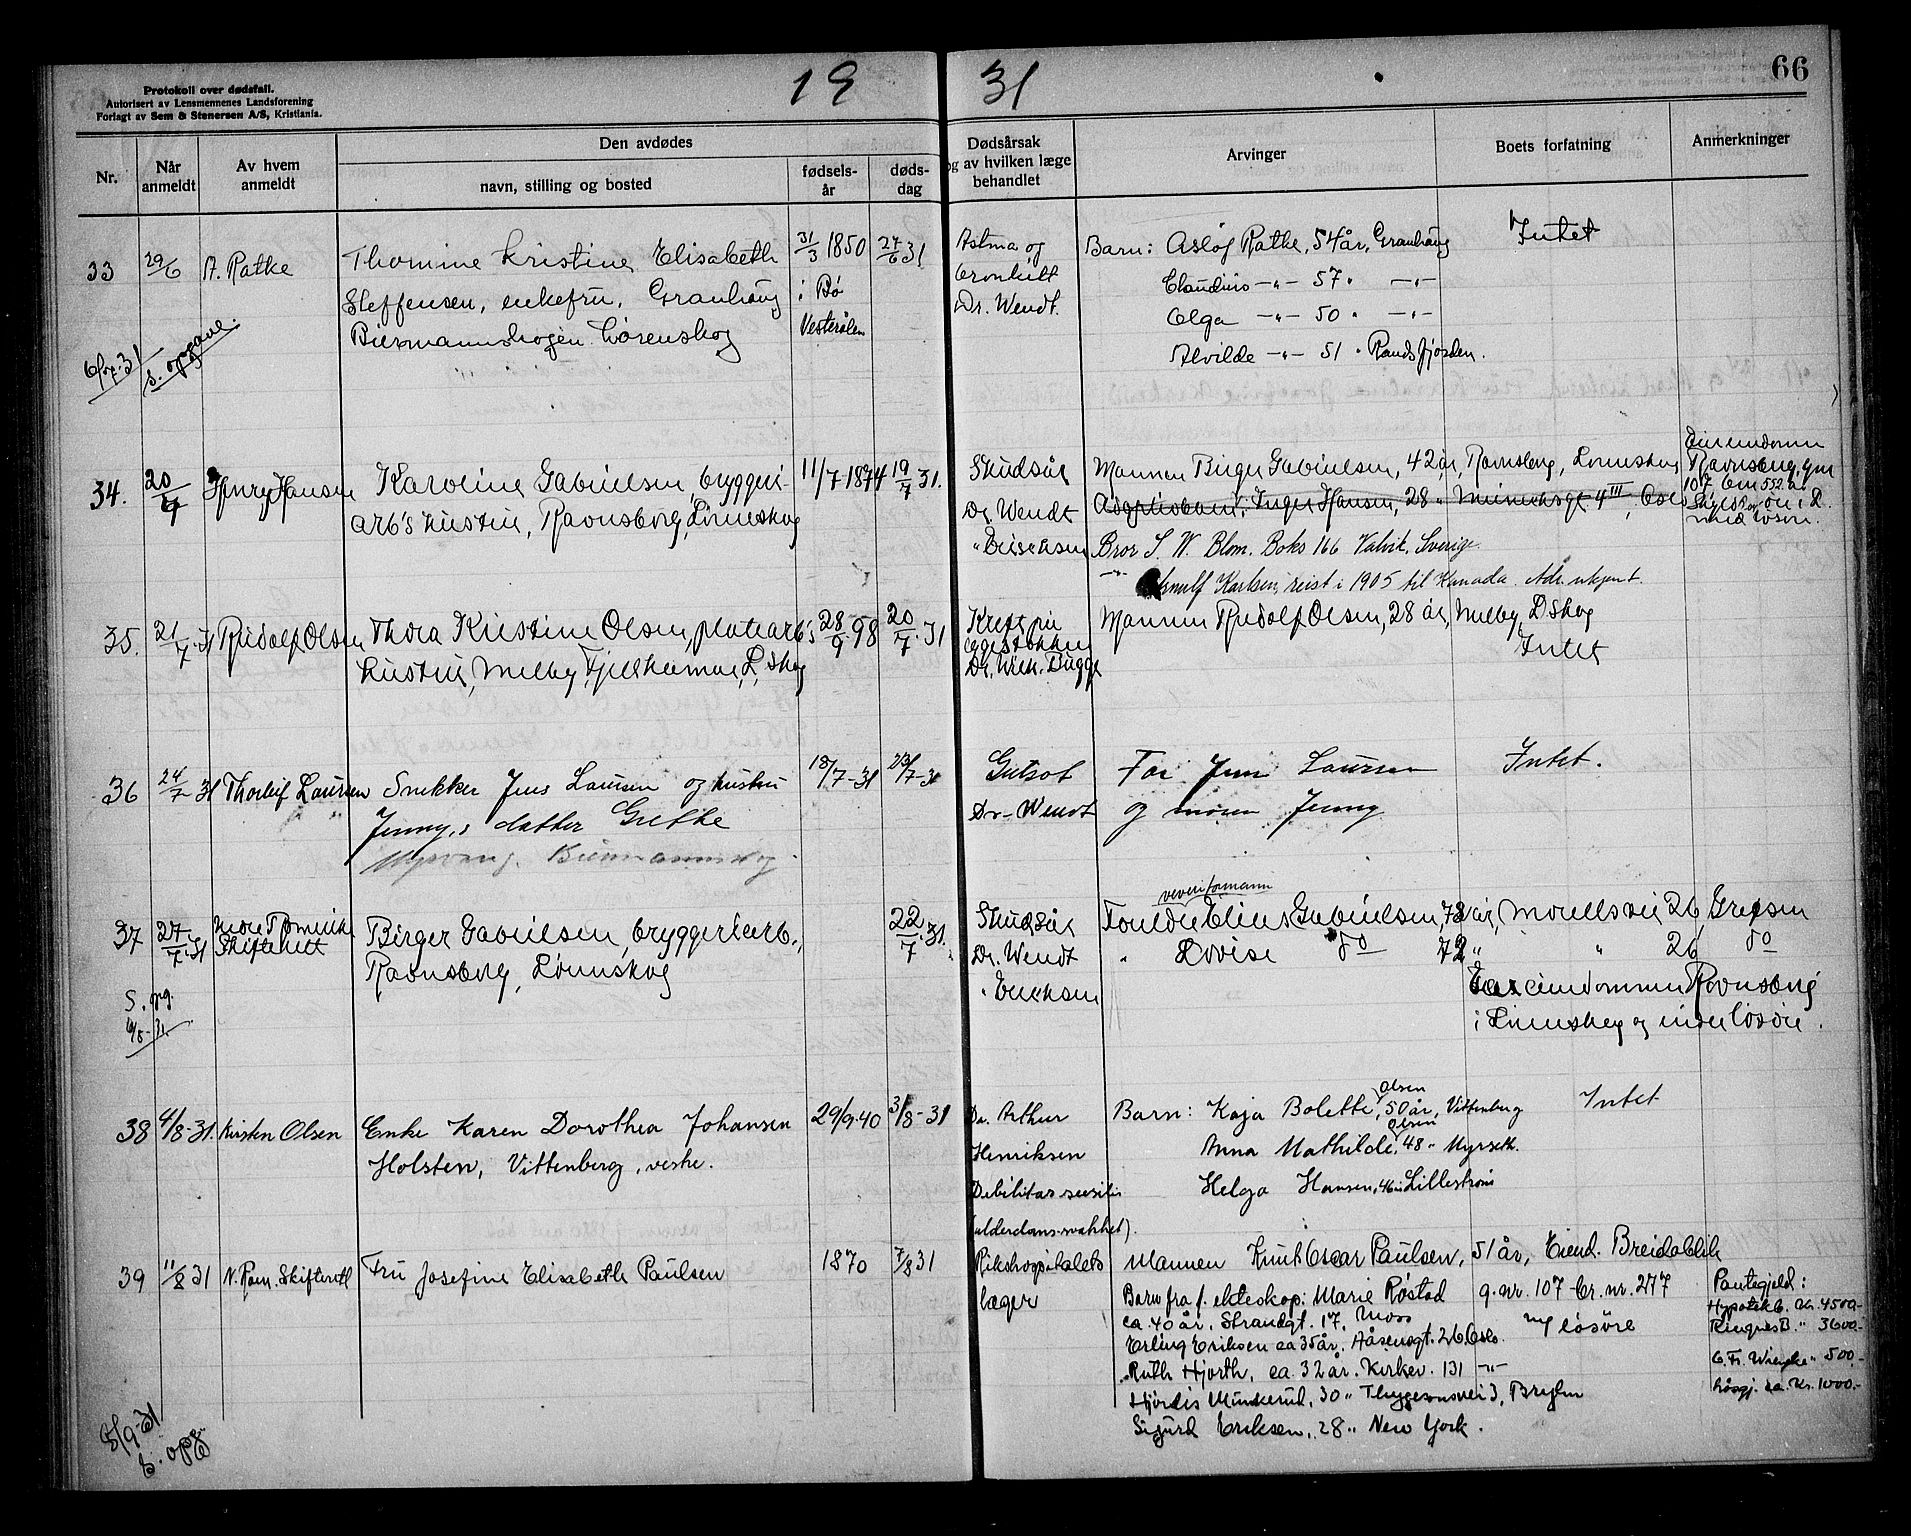 19 31
66
Protokoll over dødsfall.
Autorisert av Lensmennenes Landsforening
Forlagt av Sem & Stenersen A/S, Kristiania.
Nr.
Når anmeldt
Av hvem anmeldt
Den avdødes
navn, stilling og bosted
fødsels-år
døds-dag
Dødsårsak
og av hvilken læge
behandlet
Arvinger
Boets forfatning
Anmerkninger
33 29/6 A. Ratke Thomine Kristine Elisabeth 31/3 1850 27/6 31 Astma og Barn: Asløf Ratke, 54 år, Grauhaug Intet
Steffensen, enkefru, Grauhaug i Bø bronkitt Claudius -"- 57 " -"-
Biermannskogen Lørenskog Vesterålen Dr. Wendt. Olga -"- 50 " -"-
6/7-31 s. opgave. Alvilde -"- 51 " Randsfjorden.
34. 20/7 Henry Hansen Karoline Gabrielsen, bryggeri- 11/7-1874 19/7 31. Skudsår Mannen Birger Gabrielsen, 42 år, Ravnsborg, Lørenskog Eiendommen
arb's hustru, Ravnsborg, Lørenskog Dr. Wendt Adoptivbarn: Inger Hansen, 28 " Munchsgt 4 III, Oslo Ravnsborg, gnr
107 bnr 552 av
" Erichsen Bror S. W. Blom. Boks 166 Valvik. Sverige.
med løsøre.
-"- Arnulf Karlsen, reist i 1905 til Kanada. Adr. ukjent.
35. 21/7-31 Rudolf Olsen Thora Kristine Olsen, platearb's 28/9 98 20/7-31 Kreft på Mannen Rudolf Olsen, 28 år, Melby, L. Skog
hustru, Melby, Fjellhamar, L. Skog eggestokken Intet
Dr. Wilh. Bugge
36 24/7 31 Thorleif Laursen Snekker Jens Laursen og hustru 18/7-31 23/7-31 Gulsot Far Jens Laursen Intet.
Jenny,s datter Grethe Dr- Wendt og moren Jenny
Biermannskog.
veveriformann
37 27/7-31 Nedre Romerike Birger Gabrielsen, bryggeriarb., 22/7-31. Skudsår Foreldre Elius Gabrielsen, 73 år, Møllesvei 26 Grefsen
Skifterett Ravnsborg, Lørenskog Dr. Wendt " Lovise do 72 " " 26 do
S. opg. " Erichsen Har eiendommen Ravnsborg
6/8-31. i Lørenskog og endel løsøre.
Olsen
38 4/8-31. Kirsten Olsen Enke Karen Dorothea Johansen 29/9-40 3/8-31 Dr. Arthur Barn: Kaja Bolette, 50 år, Vittenberg Intet
Olsen
Holsten, Vittenberg, vestre. Henriksen Anna Mathilde, 48 " Myrseth.
Debilitas senilis Helga Hansen, 46 " Lillestrøm
(alderdomssvakhet).
39 11/8 31 N. Rom. Skifterett Fru Josefine Elisabeth Paulsen 1870 7/8 31 Rikshospitalets Mannen Knut Oscar Paulsen, 51 år, Eiend. Breidablik
læger Barn fra f. ekteskap: Marie Røstad g.nr. 107 br.nr. 217 Pantegjeld:
ca. 40 år, Strandgt. 17, Moss m/ løsøre Hypotekb. Kr. 4500.-
Erling Eriksen ca 35 år, Åsengt. 26 Oslo. Ringnes B. " 3600.-
Ruth Hjorth, ca. 32 år. Kirkev. 131 -"- " 500.-
Hjördis Munkerud, 30 " Thygesonsvei 3, Bryn Løsgj. ca. Kr. 1000.-
5/9-31 s. opg. Sigurd Eriksen, 28 " New York.